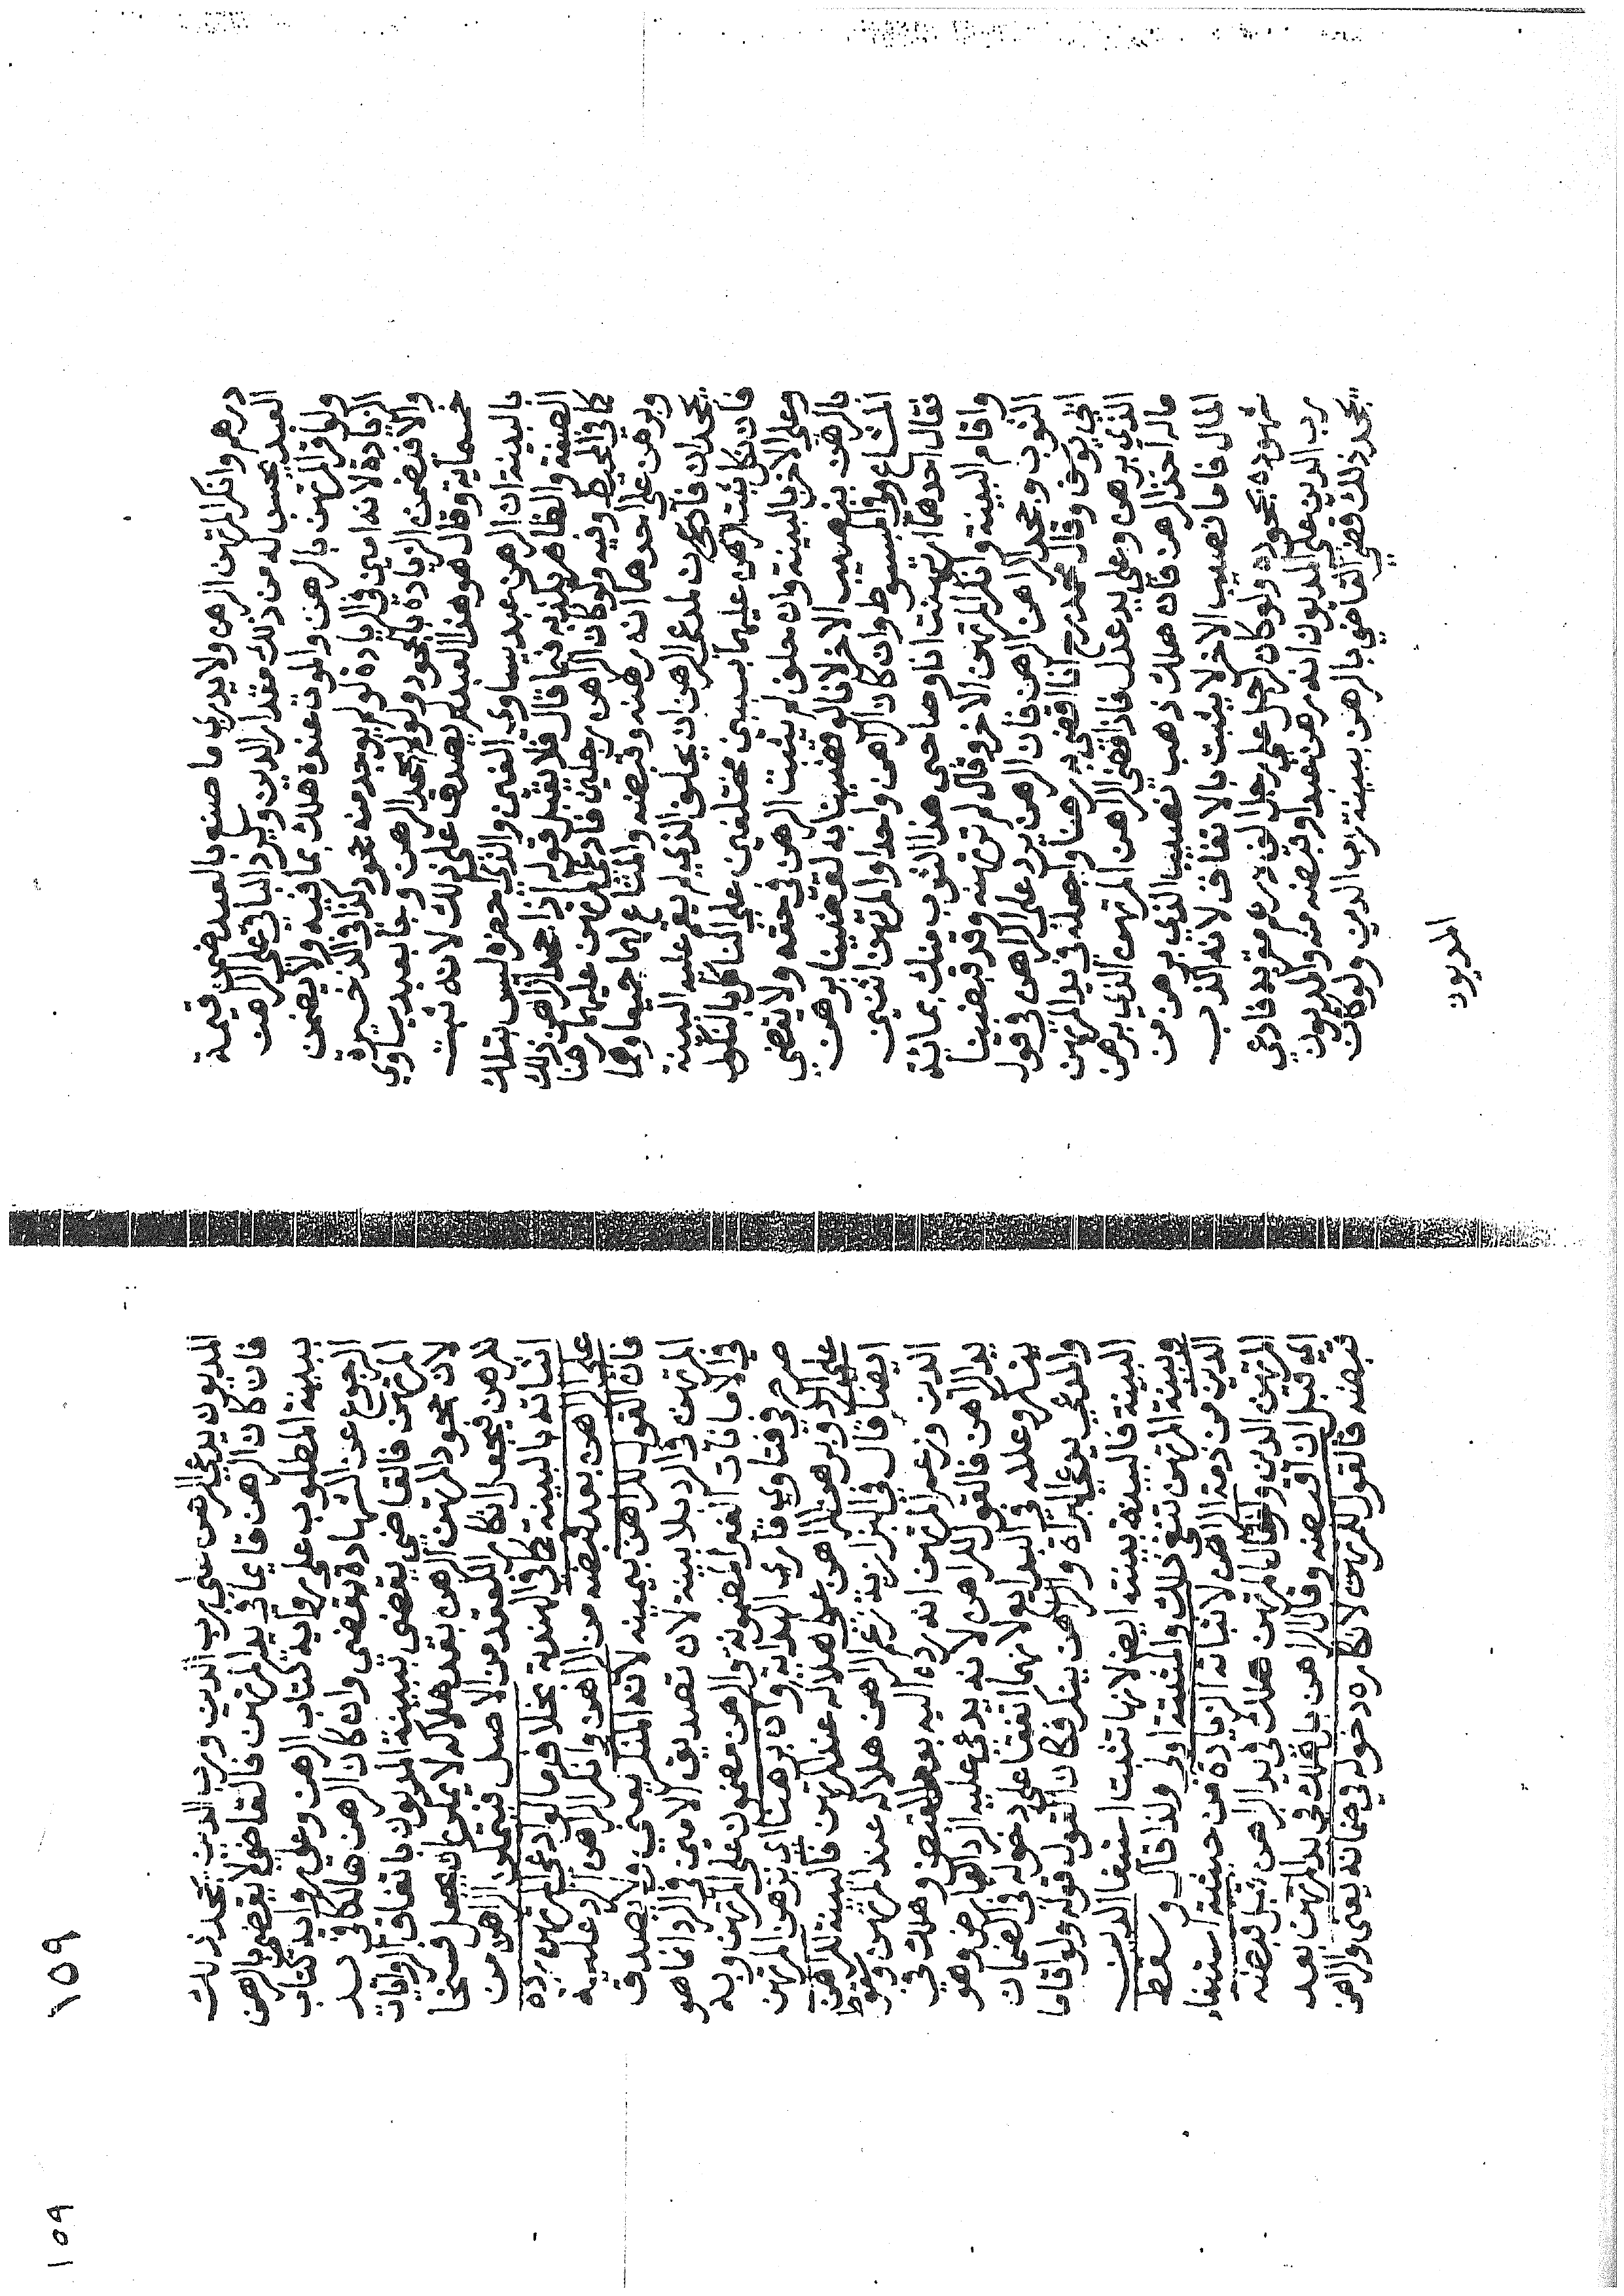 درهم وانكر المرتهن الرهن ولا يدري ما صنع بالعبد ضمن قيمة
العبد يحسب له من ذلك مقدار الدين ويرد الباقي على الراهن
ولو اقر المرتهن بالرهن والموت عنده هلك بما فيه ولا يضمن
الزيادة لانه امين في الزيادة ولم يوجد منه جحود كذا في الذخيرة
والا فتضمن الزيادة بالجحود ولو لم يجحد الرهن وجا بعبد يساوي
خمسماية وقال هو هذا العبد لم يصدق على ذلك لانه ثبت
بالبينة ان الرهن عبد يساوي الفين والذي احضره ليس بتلك
الصفة والظاهر يكذبه فيما قال فلا يقبل قوله اذا جحد الراهن ذلك
كما في المحيط وفيه ولو كان الراهن رجلين فادعى المرتهن عليهما رهنا
وبرهن على احدهما انه رهنه وقبضه والمتاع لهما جميعا وهما
يجحدان فادعى لمدعي الرهن ان يحلف الذي لم يقم عليه البينة
فان نكل ثبت الرهن عليهما بسببين مختلفين على الناكل بالنكول
وعلى الاخر بالبينة وان حلف لم يثبت الرهن في حقه ولا يقضي
بالرهن بنصيب الاخر لانا لو قضينا به لقضينا برهن
المشاع وفي المبسوط وان كان الراهن واحدا والمرتهن اثنين
فقال احدهما ارتهنت انا وصاحبي هذا الثوب منك بمائة
واقام البينة وانكر المرتهن الاخر وقال لم نرتهنه وقد قبضنا
الثوب وجحد الراهن الرهن فان الرهن يرد على الراهن في قول
ابي يوسف وقال محمد رح انا اقضي به رهنا واجعله في يد المرتهن
الذي برهن وعلى يد عدل فاذا قضى الراهن المرتهن الذي برهن
ماله اخذ الرهن فان هلك ذهب نصيب الذي برهن من
المال فاما نصيب الاخر لا يثبت بالاتفاق لانه اكذب
شهوده بجحوده ولو كان لرجل على رجل الف درهم مقر به فادعى
رب الدين على المديون انه رهن عبدا وقبضه منه والمديون
يجحد ذلك قضى القاضي بالرهن ببينة رب الدين ولو كان
المديون
١٥٩
المديون يدعي الرهن على رب الدين ورب الدين يجحد ذلك
فان كان الرهن قايما في يد المرتهن فالقاضي لا يقضي بالرهن
ببينة المطلوب على رواية كتاب الرهن وعلى رواية كتاب
الرجوع عن الشهادة يقضي وان كان الرهن هالكا في يد
المرتهن فالقاضي يقضي ببينة المديون باتفاق الروايات
لان جحود المرتهن الرهن بعد هلاكه لا يمكن ان يجعل فسخا
للرهن فيجعل انكارا للعقد من الاصل فيتمكن الراهن من
اثباته بالبينة كما في الهندية بخلاف ما لو ادعى المرتهن رده
على الراهن بعد قبضه من الراهن وانكر الراهن الرد عليه
فان القول للراهن بيمينه لانه المنكر يعني ولا يصدق
المرتهن في الرد بلا بينة لان تصديق الامين في الرد انما هو
في الامانات الغير المضمونة والرهن مضمون على المرتهن وبه
صرح في فتاوى قاري الهداية وان برهنا اي برهن المرتهن
على الرد وبرهن الراهن على هلاكه عند المرتهن فالبينة للراهن
ايضا قال في البزازية زعم الراهن هلاكه عند المرتهن وسقوط
الدين وزعم المرتهن انه رده اليه بعد القبض وهلك في
يد الراهن فالقول للراهن لانه يدعي عليه الرد العارض وهو
ينكر وعلله في البدايع لانهما اتفقا على دخوله في الضمان
والمدعي يدعي البراة والراهن ينكر فكان القول قوله ولو اقاما
البينة فالبينة بينته ايضا لانها تثبت استيفا الدين
وبينة المرتهن تنفي ذلك والمثبتة اولى ولذا قال وسقط
الدين من ذمة الراهن لاثباته الزيادة من حيثية استيفاء
المرتهن الدين ولو قال المرتهن هلك في يد الراهن قبل قبضه
اي قبل ان اقبضه وقال الراهن بل هلك في يد المرتهن بعد
قبضه فالقول للمرتهن لانكاره دخوله في ضمانه يعني والراهن
١٥٩